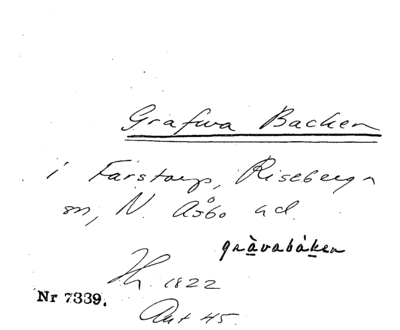 Grafwa Backen
i Färstorp, Riseberga
sn, N. Åsbo hd.
gràvabàken
Hh. 1822
Nr 7339.
Akt 45.